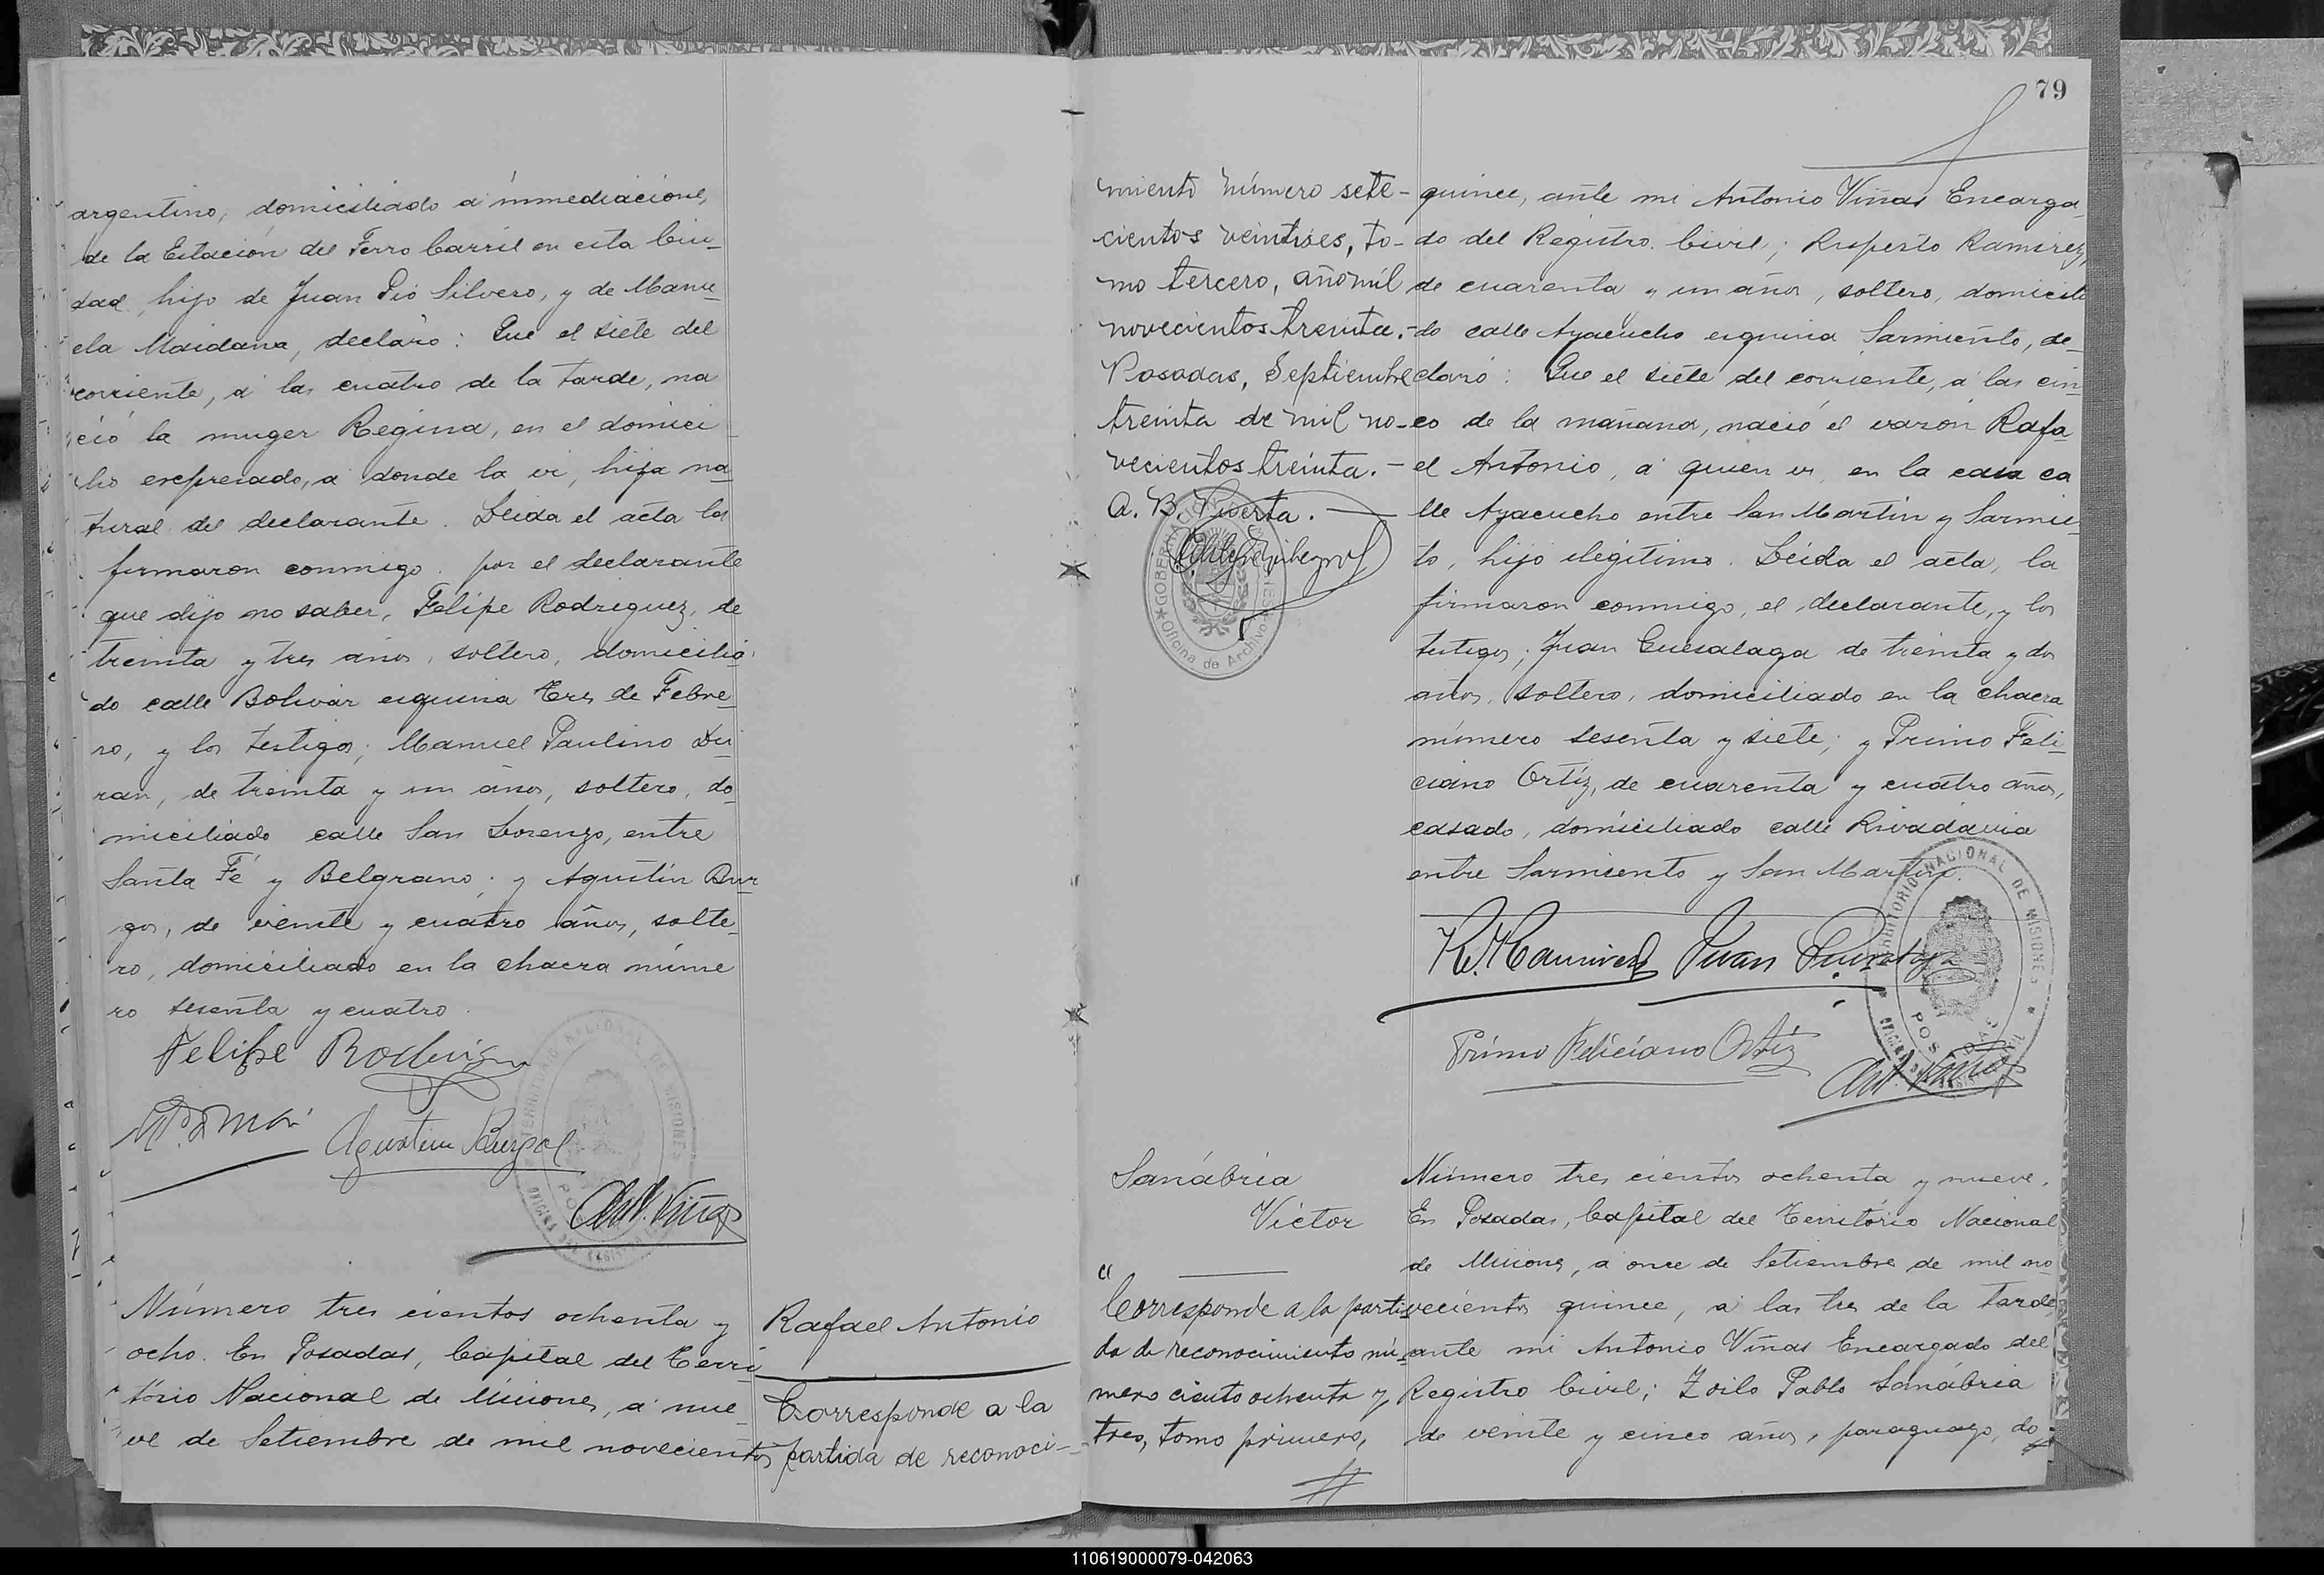 argentino, domiciliado á inmediaciones
de la Estación del Ferro Carril en esta Ciu-
dad, hijo de Juan Pio Silvero, y de Manu-
ela Maidana, declaró: Que el siete del
corriente, á las cuatro de la tarde, na
ció la muger Regina, en el domici-
lio expresado, a donde la vi, hija na-
tural del declarante. Leida el acta la
firmaron conmigo, por el declarante
que dijo no saber, Felipe Rodriguez, de
treinta y tres años, soltero, domicilia-
do calle Bolivar esquina Tres de Febre-
ro, y los testigos; Manuel Paulino Du-
ran, de treinta y un años, soltero, do-
miciliado calle San Lorenzo, entre
Santa Fé y Belgrano; y Agustin Bur-
gos, de veinte y cuatro años, solte-
ro, domiciliado en la chacra núme
ro sesenta y cuatro.
Felipe Rodrigu
Agustin Burgos
Ant. Viñas
Número tres cientos ochenta y
ocho. En Posadas, Capital del Terri
tório Nacional de Misiones, á nue-
ve de Setiembre de mil novecientos
Rafael Antonio
Corresponde a la
partida de reconoci-
79
miento número sete-
cientos veintrées, to-
mo tercero, año mil
novecientos treinta.-
Posadas, Septiembre
treinta de mil no-
vecientos treinta.-
A. B. Puerta.
GOBERNACION
Oficina de Archivo
quince, ante mi Antonio Viñas Encarga
do del Registro Civil; Ruperto Ramirez,
de cuarenta y un años, soltero, domicilia
do calle Ayacucho esquina Sarmiento, de-
claró: Que el siete del corriente, á las cin-
co de la mañana, nació el varón Rafa
el Antonio, á quien vi, en la casa ca
lle Ayacucho entre San Martin y Sarmien
to, hijo ilegitimo. Leida el acta, la
firmaron conmigo, el declarante, y los
testigos; Juan Guesalaga de treinta y dos
años, soltero, domiciliado en la chacra
número sesenta y siete; y Primo Feli-
ciano Ortíz, de cuarenta y cuatro años,
casado, domiciliado calle Rivadavia
entre Sarmiento y San Martin.
R. Ramirez Juan
Primo Feliciano Ortiz
Ant. Viñas
TERRITORIO NACIONAL DE MISIONES
POSADAS
Sanábria
Victor
"
Corresponde a la parti-
da de reconocimiento nú-
mero ciento ochenta y
tres, tomo primero,
Número tres cientos ochenta y nueve.
En Posadas, Capital del Território Nacional
de Misiones, á once de Setiembre de mil no-
vecientos quince, á las tres de la tarde,
ante mi Antonio Viñas Encargado del
Registro Civil; Zoilo Pablo Sanábria
de veinte y cinco años, paraguayo, do-
110619000079-042063